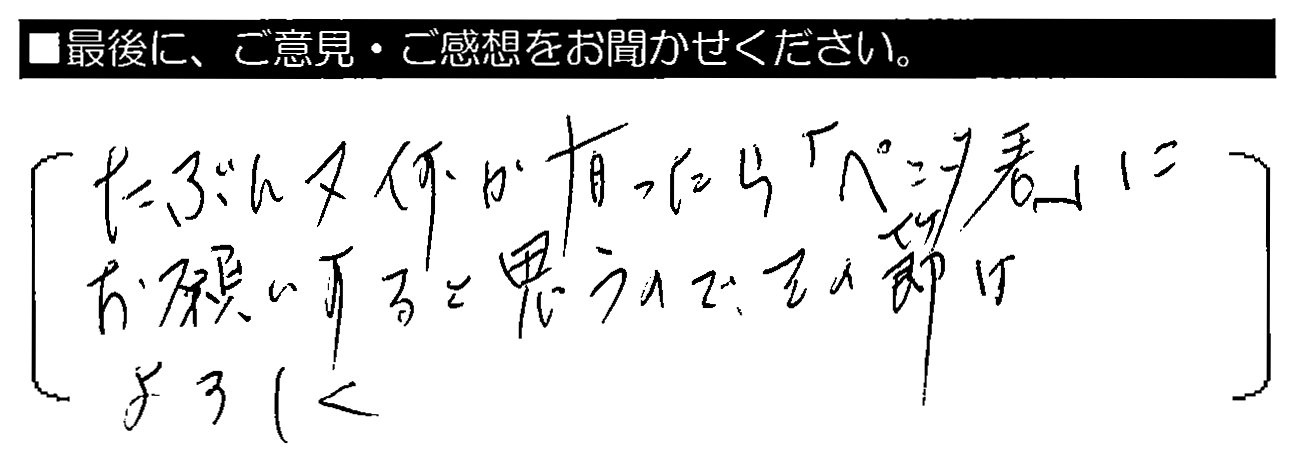 ■最後に、ご意見・ご感想をお聞かせください。
たぶん又何かが有ったら「ペンタ君」に
お願いすると思うので、その節は
よろしく